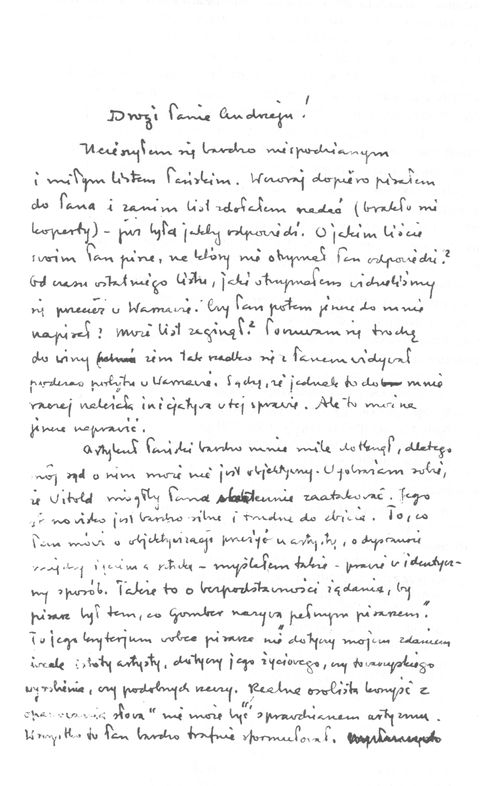 Drogi Panie Andrzeju!
Ucieszyłem się bardzo niespodzianym
i miłym listem Pańskim. Wczoraj dopiero pisałem
do Pana i zanim list zdołałem nadać (brakło mi
koperty) – już była jakby odpowiedź. O jakim liście
swoim Pan pisze, na który nie otrzymał Pan odpowiedzi?
Od czasu ostatniego listu, jaki otrzymałem widzieliśmy
się przecież w Warszawie. Czy Pan potem jeszcze do mnie
napisał? Może list zaginął? Poczuwam się trochę
do winy żem tak rzadko się z Panem widywał
podczas pobytu w Warszawie. Sądzę, że jednak to do mnie
raczej należała inicjatywa w tej sprawie. Ale to można
jeszcze naprawić.
Artykuł Pański bardzo mnie mile dotknął, dlatego
mój sąd o nim może nie jest objektywny. Wyobrażam sobie,
że Witold mógłby Pana zaatakować. Jego
stanowisko jest bardzo silne i trudne do zbicia. To, co
Pan mówi o objektywizacji przeżyć u artysty, o dystansie
między życiem a sztuką – myślałem także – prawie w identycz-
ny sposób. Także to o bezpodstawności żądania, by
pisarz był tem, co Gombr. nazywa "pełnym pisarzem".
To jego kryterjum wobec pisarza nie dotyczy mojem zdaniem
wcale istoty artysty, dotyczy jego życiowego, czy towarzyskiego
wyrobienia, czy podobnych rzeczy. Realna osobista korzyść z
"opanowania słowa" nie może być sprawdzianem artyzmu.
Wszystko to Pan bardzo trafnie sformułował.